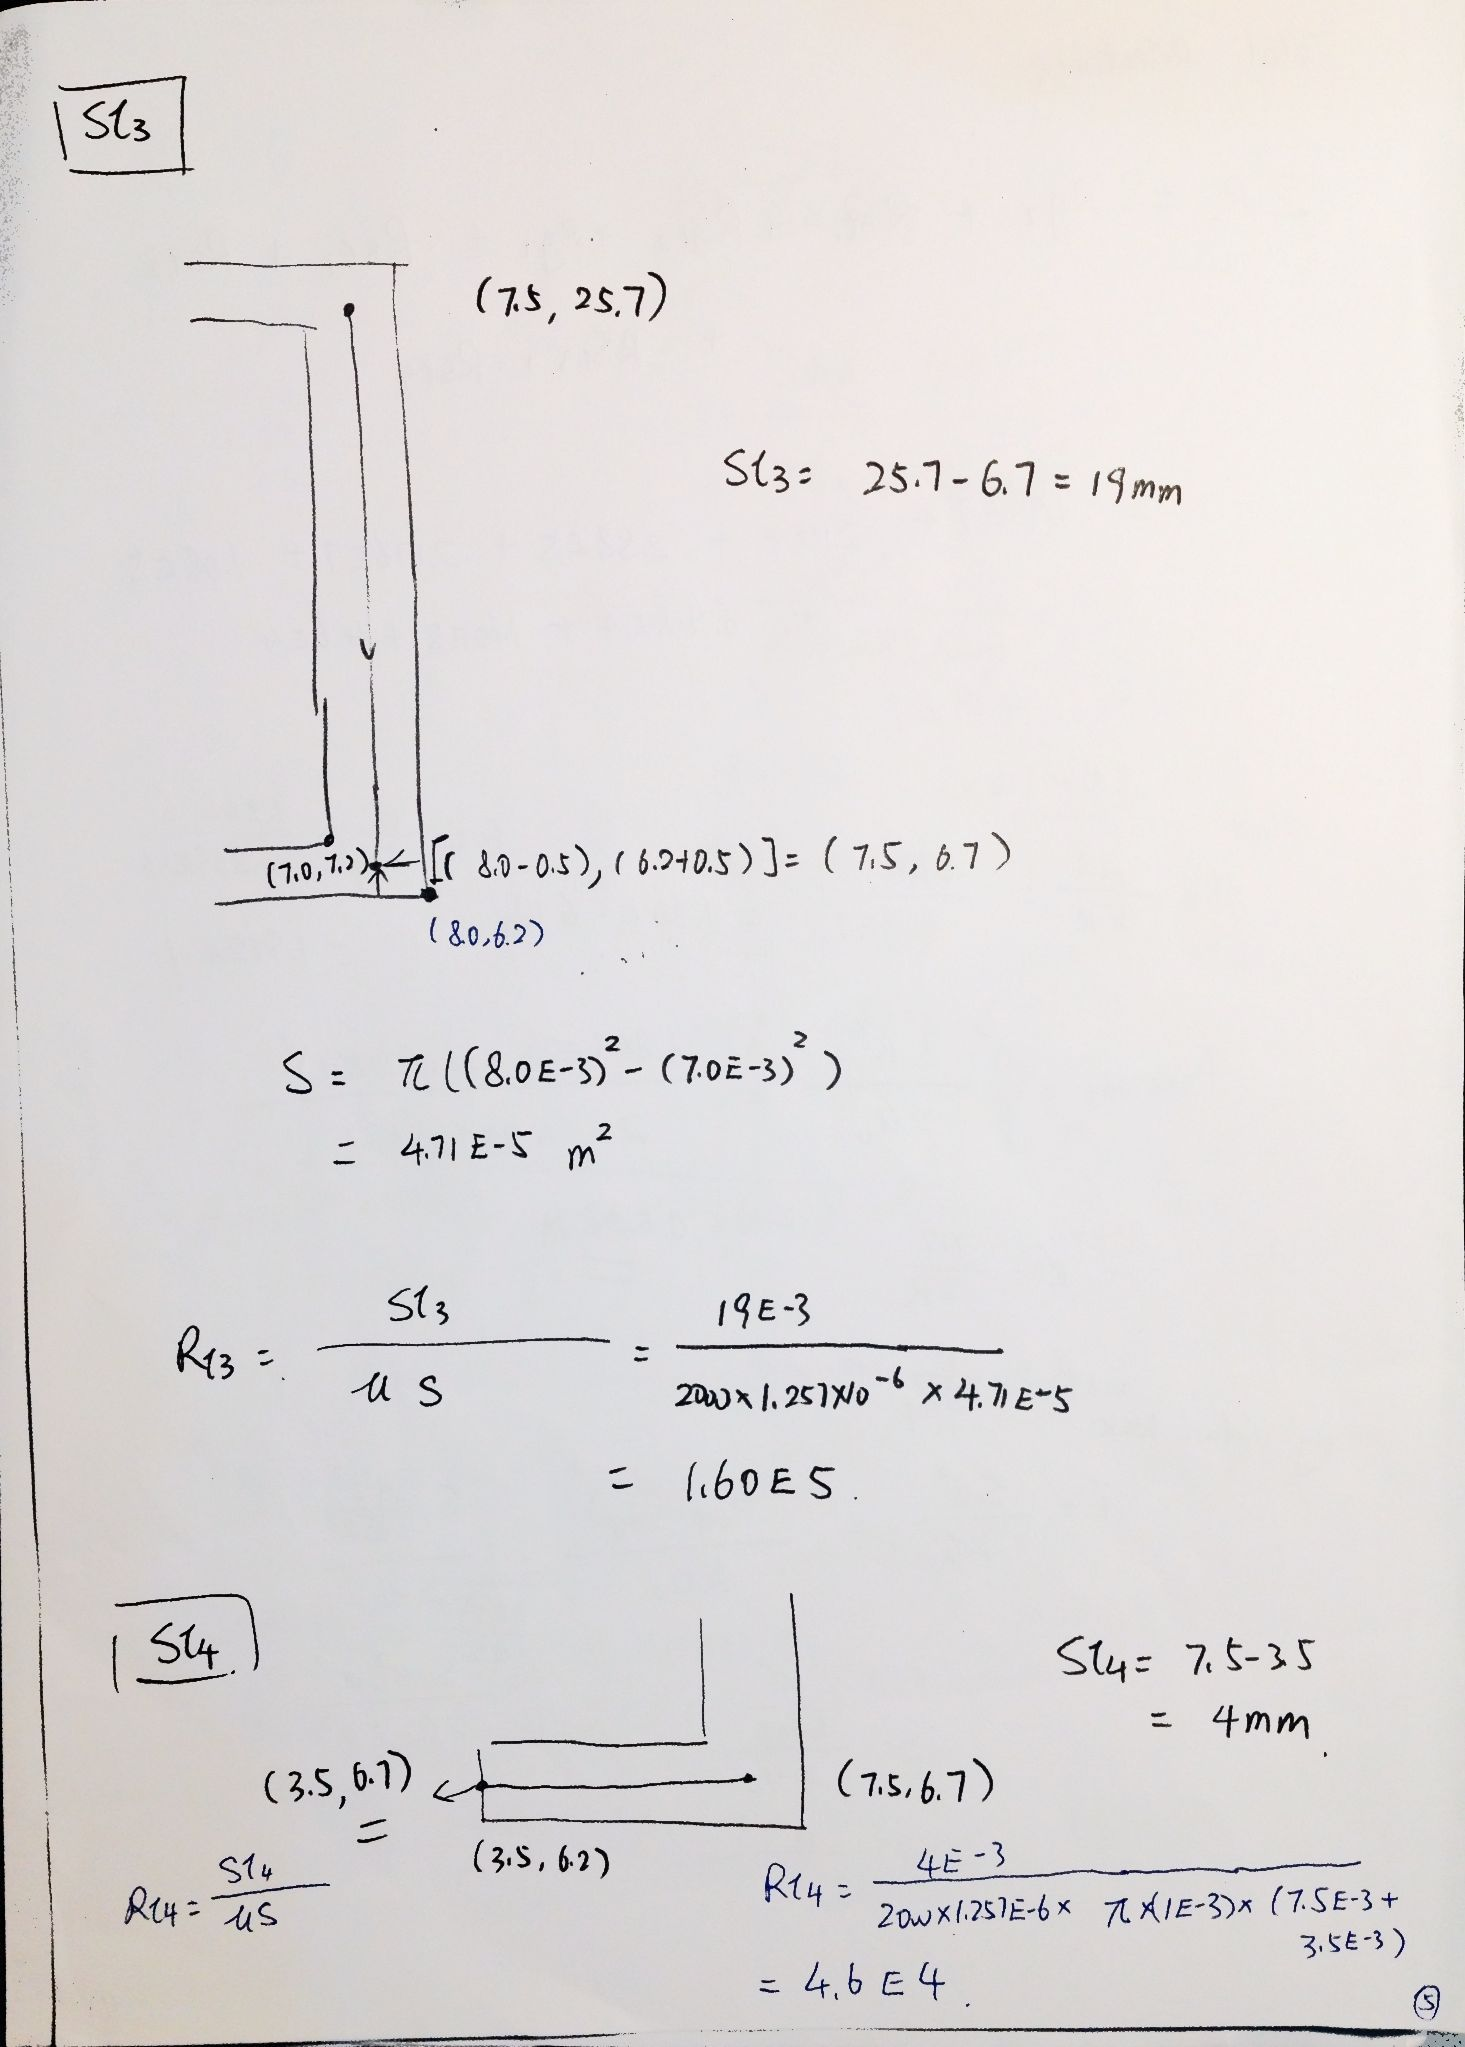 Sl3
(7.5, 25.7)
Sl3 = 25.7 - 6.7 = 19mm
(7.0, 7.2) [(8.0-0.5), (6.2+0.5)] = (7.5, 6.7)
(8.0, 6.2)
S = π((8.0E-3)² - (7.0E-3)²)
= 4.71E-5 m²
Rl3 = Sl3 / μS = 19E-3 / 2000×1.257×10⁻⁶ × 4.71E-5
= 1.60E5.
Sl4
Sl4 = 7.5-3.5
= 4mm.
(3.5, 6.7)
(7.5, 6.7)
(3.5, 6.2)
Rl4 = Sl4 / μS
Rl4 = 4E-3 / 2000×1.257E-6× π×(1E-3)× (7.5E-3+
3.5E-3)
= 4.6E4.
5